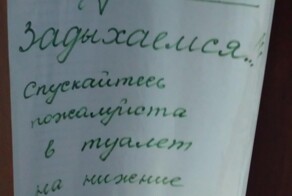 Задыхаемся..!!
Спускайтесь
пожалуйста
в туалет
на нижние